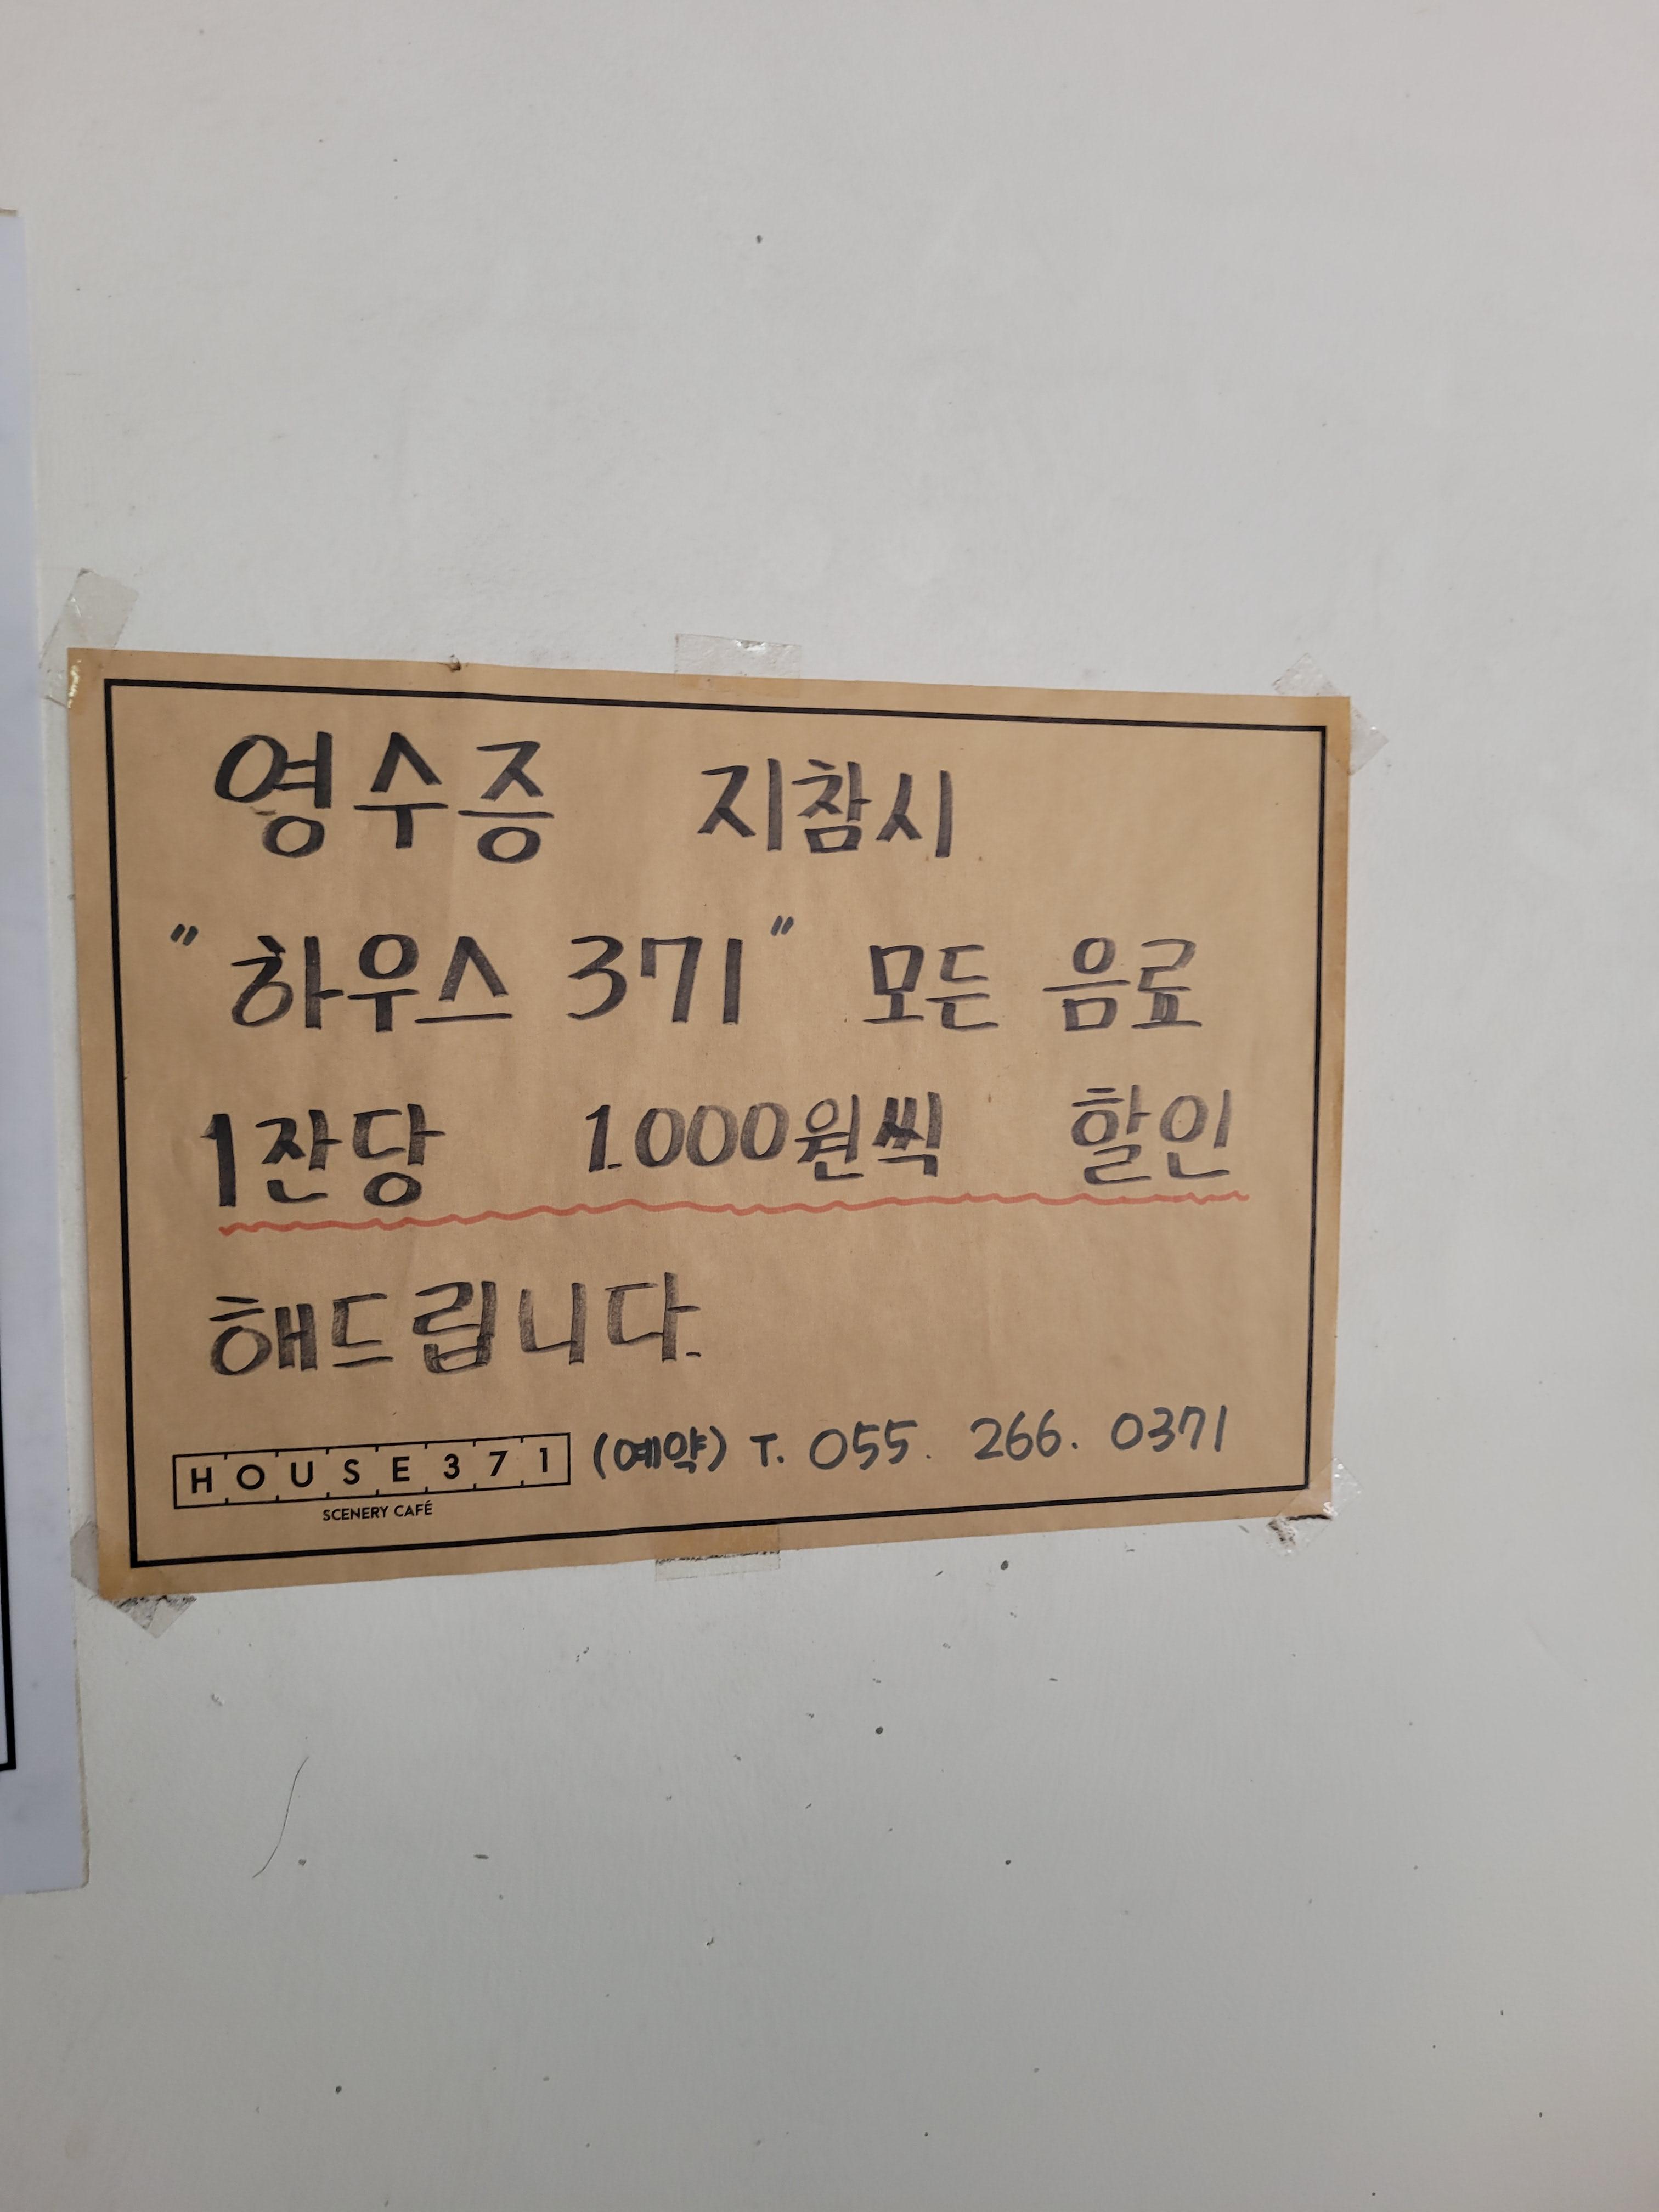 영수증 지참시
"하우스 371" 모든 음료
1잔당 1.000원씩 할인
해드립니다.
HOUSE371 (예약) T. 055. 266. 0371
SCENERY CAFÉ